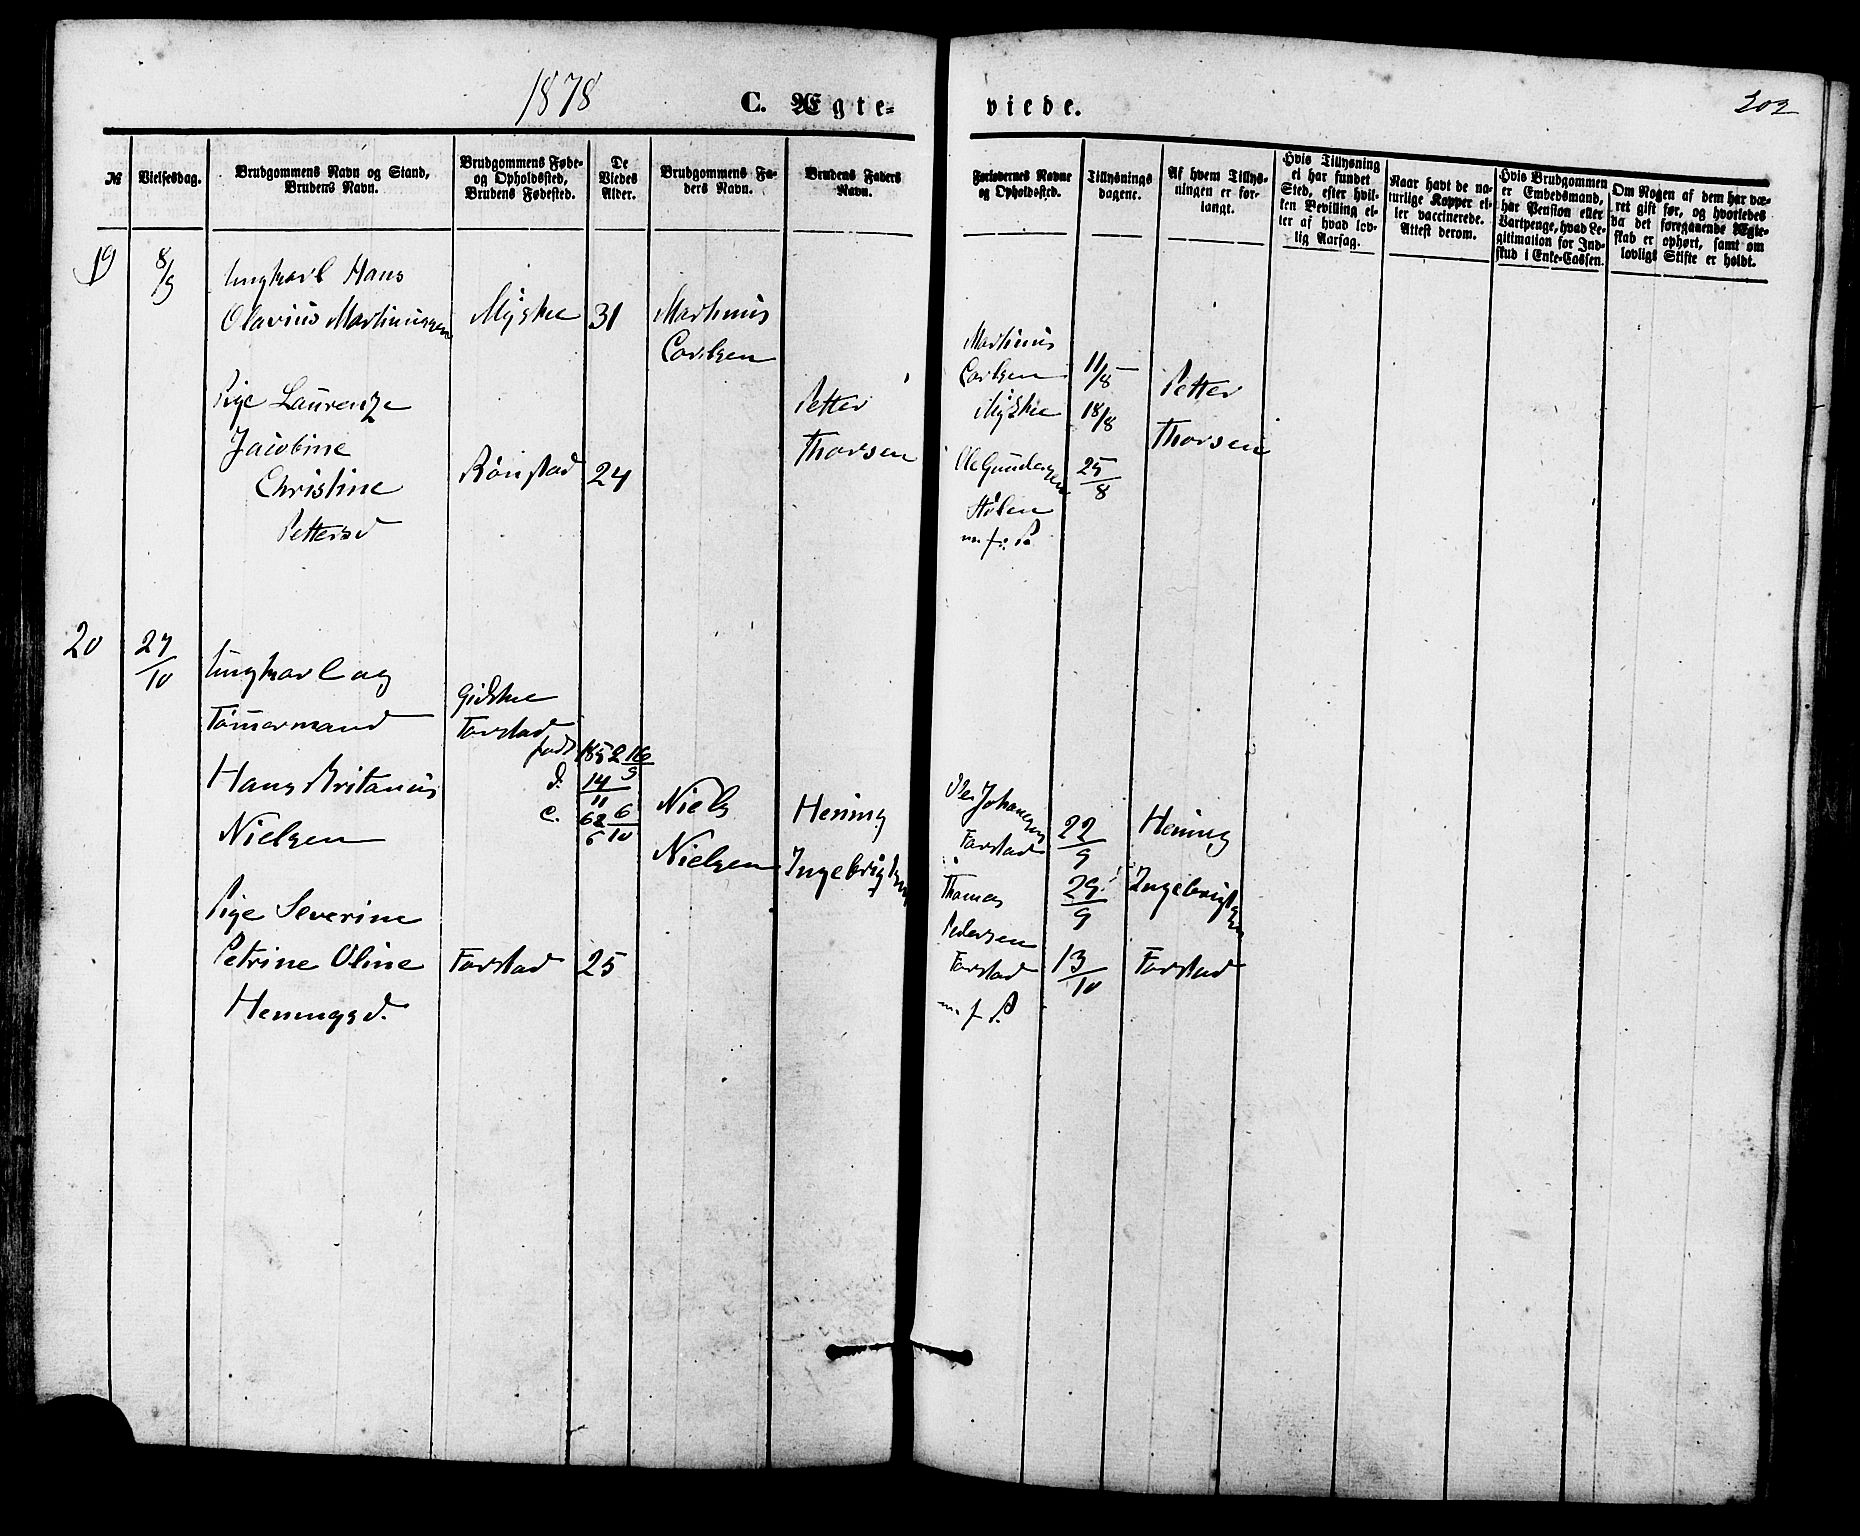 1878
C. Ægte-
viede.
202
№
Vielsesdag.
Brudgommens Navn og Stand,
Brudens Navn.
Brudgommens Føde-
og Opholdssted,
Brudens Fødested.
De
Viedes
Alder.
Brudgommens Fa-
ders Navn.
Brudens Faders
Navn.
Forlovernes Navne
og Opholdssted.
Tillysnings
dagene.
Af hvem Tillys-
ningen er for-
langt.
Hvis Tillysning
ei har fundet
Sted, efter hvil-
ken Bevilling el-
ler af hvad lov-
lig Aarsag.
Naar havt de na-
turlige Kopper el-
ler vaccinerede.
Attest derom.
Hvis Brudgommen
er Embedsmand,
har Pension eller
Vartpenge, hvad Le-
gitimation for Ind-
skud i Enke-Cassen.
Om Nogen af dem har væ-
ret gift før, og hvorledes
da det foregaaende Ægte-
skab er ophørt, samt om
lovligt Skifte er holdt.
19
8/9
Ungkarl Hans
Olavius Martinussen
Myskee
31
Martinus
Carlsen
Pige Laurentze
Jacobine
Christine
Pettersd
Rønstad
24
Petter
Thorsen
Martinus
Carlsen
Myskee
Ole Gundersen
Stølen
m. f. P.
11/8
18/8
25/8
Petter
Thorsen
20
27/10
Ungkarl og
Tømmermand
Hans Britanius
Nielsen
Gidskee
Farstad
født 1852 16/9
d. 14/11
c. 68 6/10
Niels
Nielsen
Pige Severine
Petrine Oline
Henningsd.
Farstad
25
Hening
Ingebrigtsen
Ole Johansen
Farstad
Thomas
Pedersen
Farstad
m. f. P.
22/9
29/9
13/10
Hening
Ingebrigtsen
Farstad